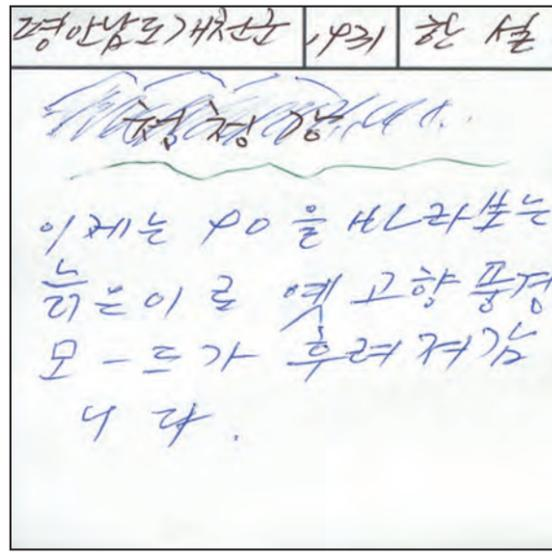 평안남도개천군 1931 한설
청청강
이제는 90을 바라보는
늙은이로 옛고향풍경
모ー드가 후려져감
니다.